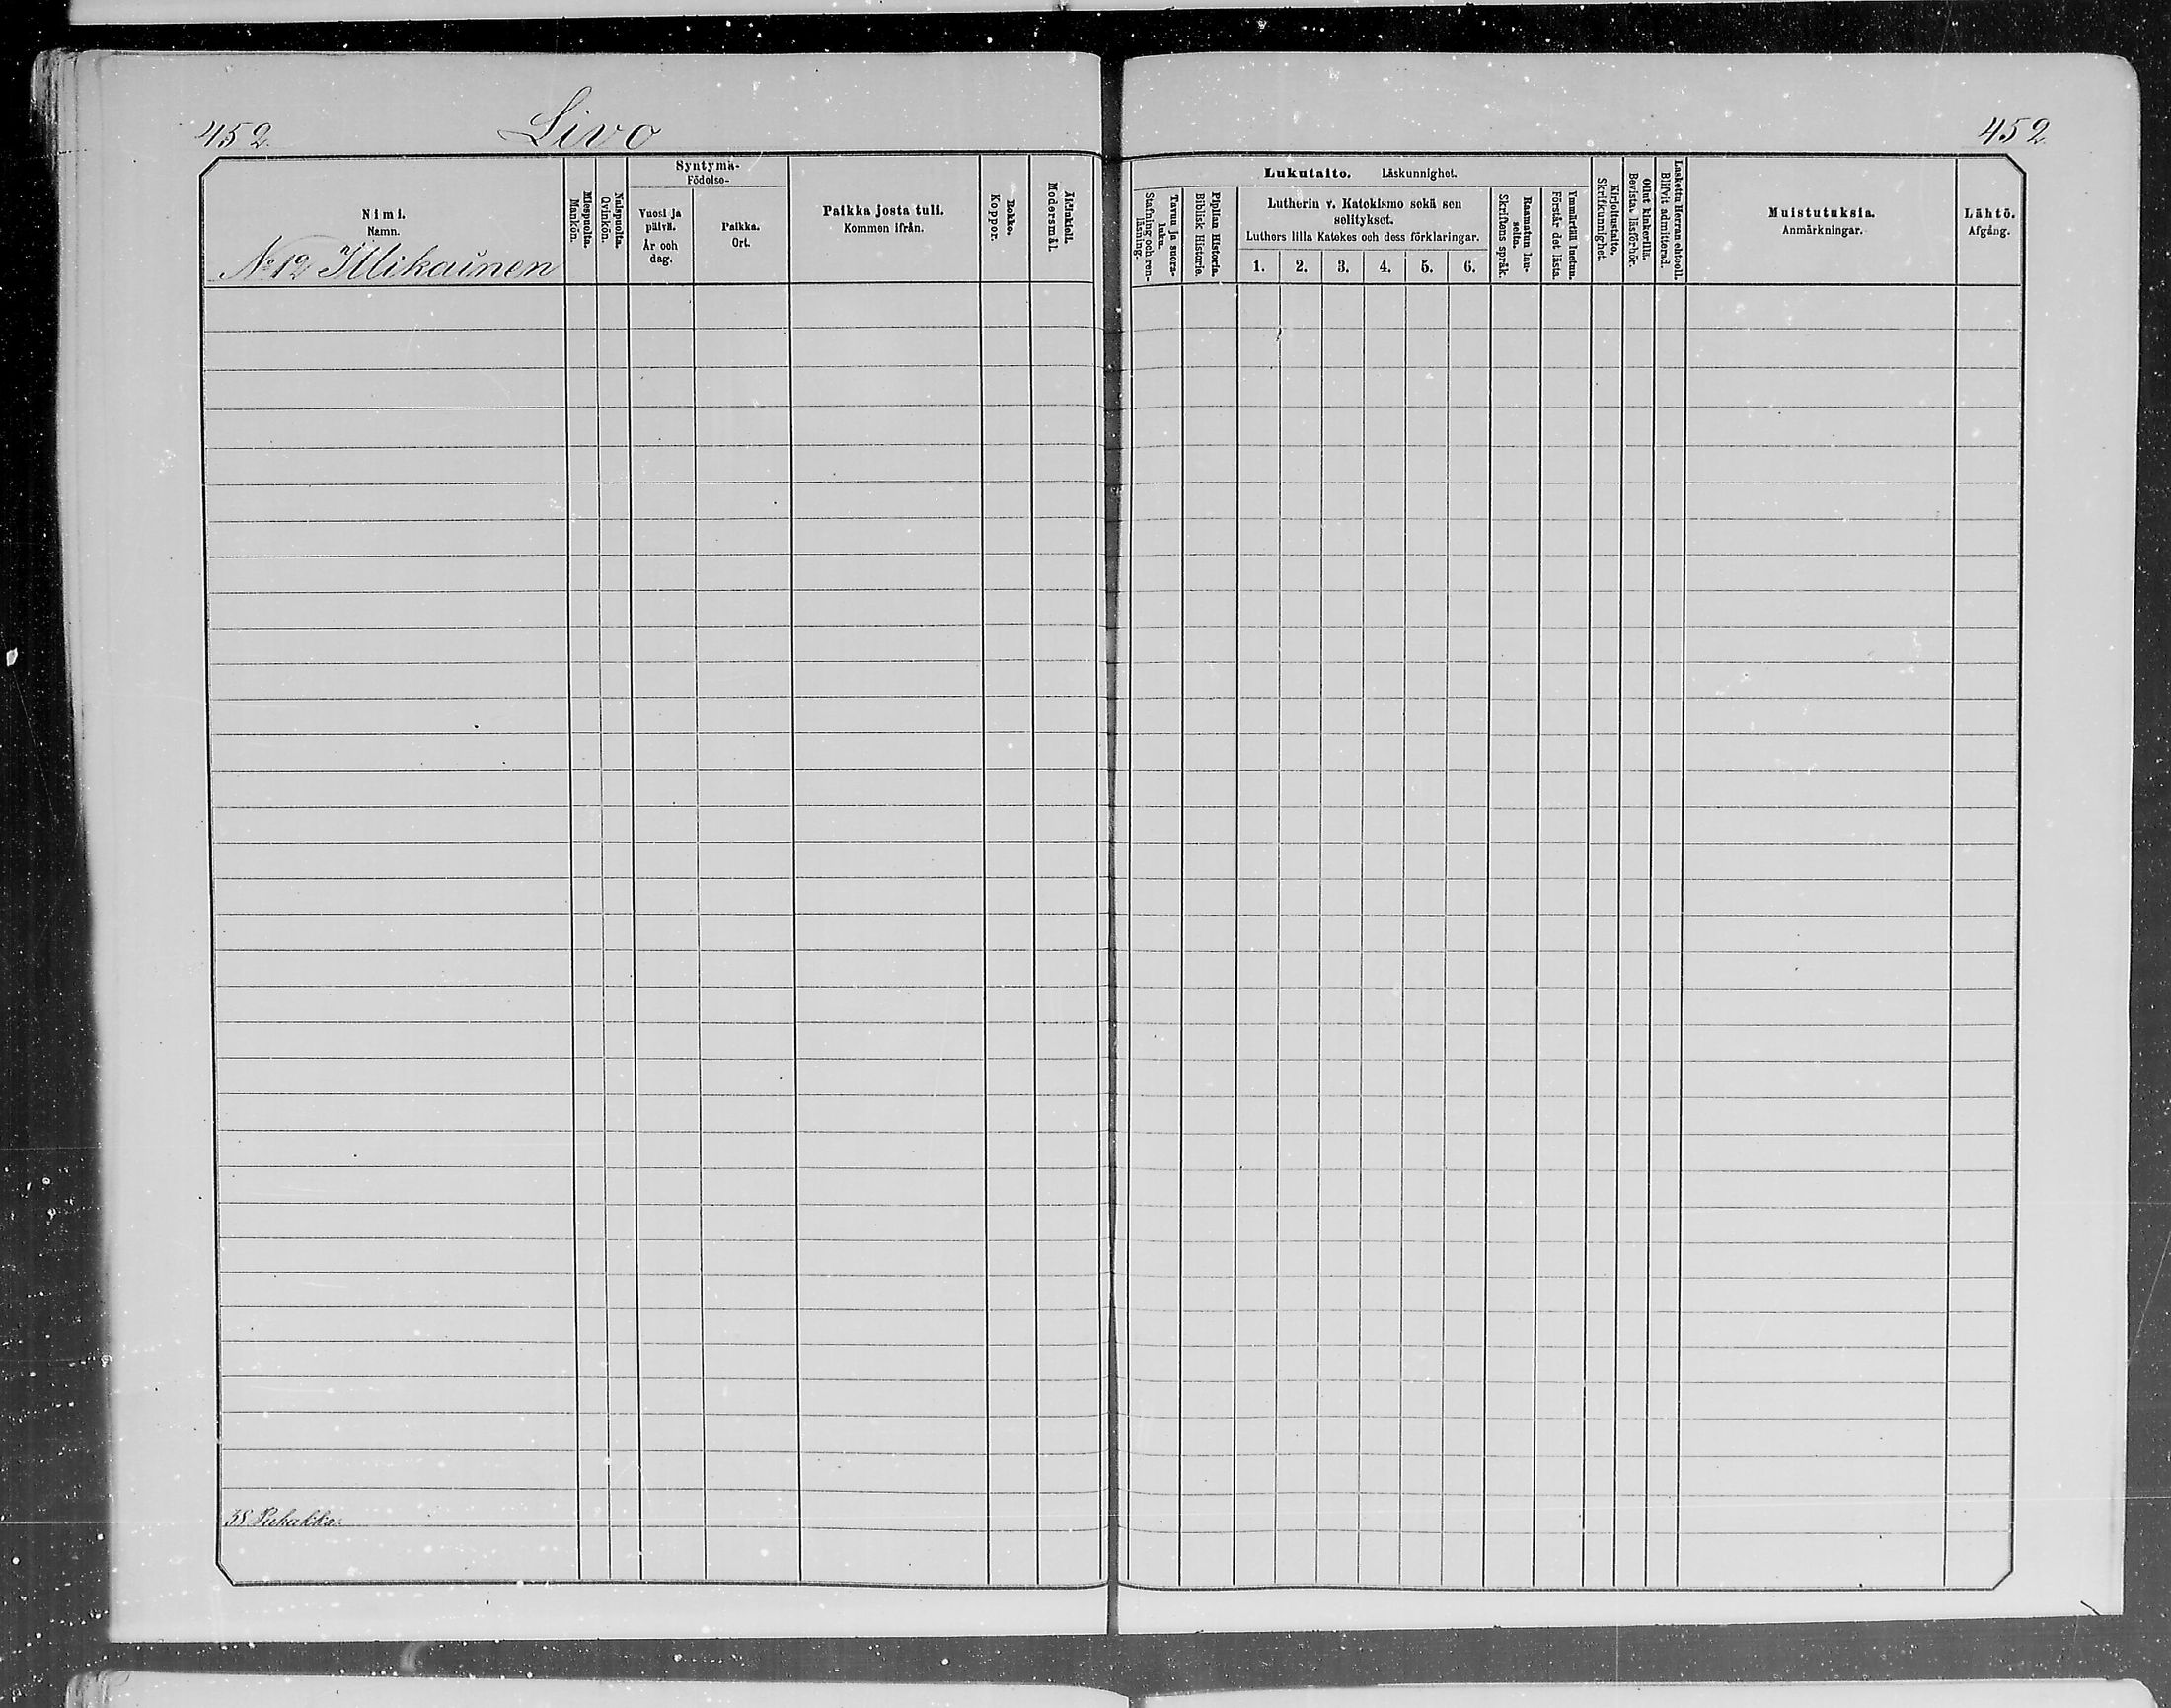 452.
Livo
452.
Nimi.
Namn.
No 12 Illikainen
Miespuolta.
Mankön.
Naispuolta.
Qvinkön.
Syntymä-
Födelse-
Vuosi ja
päivä.
År och
dag.
Paikka.
Ort.
Paikka josta tuli.
Kommen ifrån.
Rokko.
Koppor.
Äidinkieli.
Modersmål.
Lukutaito. Läskunnighet.
Tavuu ja suora-
luku.
Stafning och ren-
läsning.
Piplian Historia.
Biblisk Historie.
Lutherin v. Katekismo sekä sen
selitykset.
Luthers lilla Katekes och dess förklaringar.
1. 2. 3. 4. 5. 6.
Raamatun lau-
seita.
Skriftens språk.
Ymmärtää luetun.
Förstår det lästa.
Kirjoitustaito.
Skrifkunnighet.
Ollut kinkerillä.
Bevistat läsförhör.
Laskettu Herran ehtool.
Blifvit admitterad.
Muistutuksia.
Anmärkningar.
Lähtö.
Afgång.
38 Puhakka.